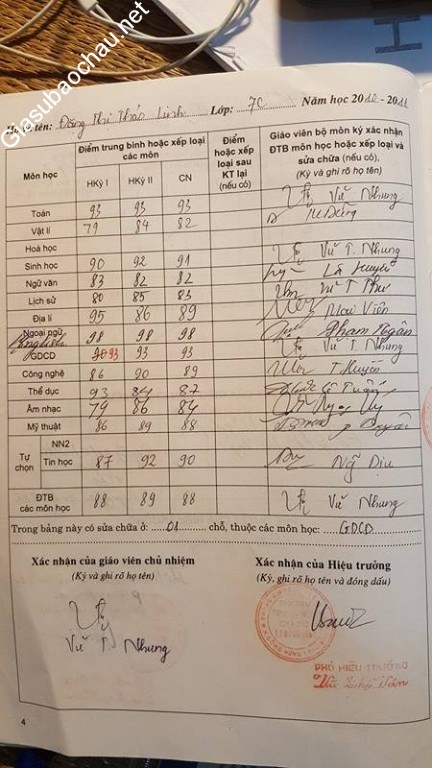 Giasubaochau.net
Họ và tên: Đồng Thị Thảo Linh Lớp: 7C Năm học 2010 - 2011
Môn học
Điểm trung bình hoặc xếp loại các môn
Điểm hoặc xếp loại sau KT lại (nếu có)
Giáo viên bộ môn ký xác nhận ĐTB môn học hoặc xếp loại và sửa chữa (nếu có),
(Ký và ghi rõ họ tên)
HKỳ I HKỳ II CN
Toán 93 93 93 Vũ T. Nhung
Vật lí 79 84 82
Hoá học
Sinh học 90 92 91 Vũ T. Nhung
Ngữ văn 83 82 82 Lã Huyền
Lịch sử 80 85 83
Địa lí 95 86 89 Mai Viên
Ngoại ngữ English 98 98 98 Phạm Ngân
GDCD 90 93 93 93 Vũ T. Nhung
Công nghệ 86 90 89 T Huyền
Thể dục 93 84 87
Âm nhạc 79 86 84
Mỹ thuật 86 89 88
Tự chọn
NN2
Tin học 87 92 90 Ng Dịu
ĐTB các môn học 88 89 88 Vũ Nhung
Trong bảng này có sửa chữa ở: 01 chỗ, thuộc các môn học: GDCD
Xác nhận của giáo viên chủ nhiệm
(Ký và ghi rõ họ tên)
Xác nhận của Hiệu trưởng
(Ký, ghi rõ họ tên và đóng dấu)
Vũ T. Nhung
PHÓ HIỆU TRƯỞNG
4